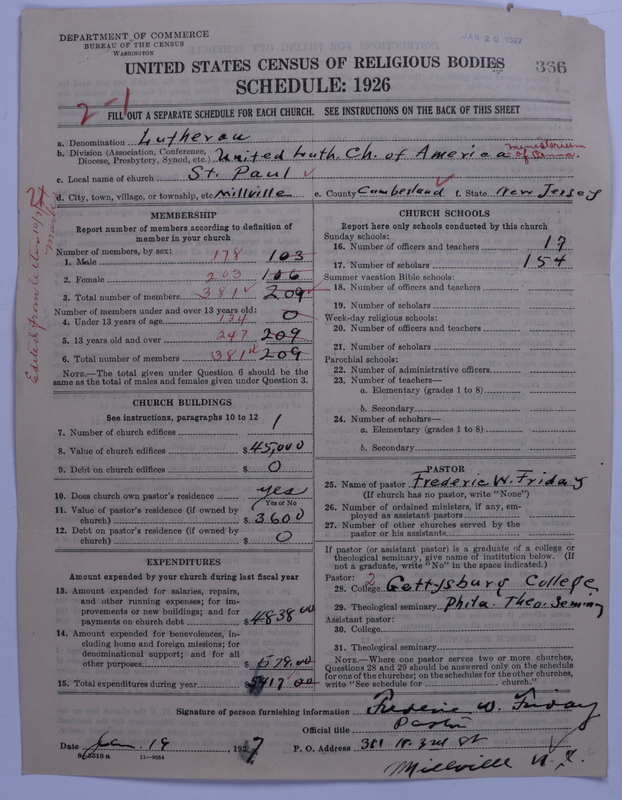 DEPARTMENT OF COMMERCE
BUREAU OF THE CENSUS
WASHINGTON
JAN 20 1927
UNITED STATES CENSUS OF RELIGIOUS BODIES
366
SCHEDULE: 1926
2-1
FILL OUT A SEPARATE SCHEDULE FOR EACH CHURCH. SEE INSTRUCTIONS ON THE BACK OF THIS SHEET
a. Denomination Lutheran
b. Division (Association, Conference, Diocese, Presbytery, Synod, etc.) United Luth. Ch. of America Ministerium of Penna.
c. Local name of church St. Paul
d. City, town, village, or township, etc Millville e. County Cumberland f. State New Jersey
Edited from letter
MEMBERSHIP
Report number of members according to definition of
member in your church
Number of members, by sex:
1. Male 178 103
2. Female 203 106
3. Total number of members 381 209
Number of members under and over 13 years old:
4. Under 13 years of age 134 0
5. 13 years old and over 247 209
6. Total number of members 381 209
NOTE.—The total given under Question 6 should be
same as the total of males and females given under Question 3.
CHURCH BUILDINGS
See instructions, paragraphs 10 to 12
7. Number of church edifices 1
8. Value of church edifices $45,000
9. Debt on church edifices $0
10. Does church own pastor's residence yes
(Yes or No)
11. Value of pastor's residence (if owned by
church) $3600
12. Debt on pastor's residence (if owned by
church) $0
EXPENDITURES
Amount expended by your church during last fiscal year
13. Amount expended for salaries, repairs,
and other running expenses; for im-
provements or new buildings; and for
payments on church debt $4838.00
14. Amount expended for benevolences, in-
cluding home and foreign missions; for
denominational support; and for all
other purposes $579.00
15. Total expenditures during year $5417.00
CHURCH SCHOOLS
Report here only schools conducted by this church
Sunday schools:
16. Number of officers and teachers 17
17. Number of scholars 154
Summer vacation Bible schools:
18. Number of officers and teachers
19. Number of scholars
Week-day religious schools:
20. Number of officers and teachers
21. Number of scholars
Parochial schools:
22. Number of administrative officers
23. Number of teachers—
a. Elementary (grades 1 to 8)
b. Secondary
24. Number of scholars—
a. Elementary (grades 1 to 8)
b. Secondary
PASTOR
25. Name of pastor Frederic W. Friday
(If church has no pastor, write "None")
26. Number of ordained ministers, if any, em-
ployed as assistant pastors
27. Number of other churches served by the
pastor or his assistants
If pastor (or assistant pastor) is a graduate of a college or
theological seminary, give name of institution below. (If
not a graduate, write "No" in the space indicated.)
Pastor: 2
28. College Gettysburg College
29. Theological seminary Phila. Theo. Seminary
Assistant pastor:
30. College
31. Theological seminary
NOTE.—Where one pastor serves two or more churches,
Questions 28 and 29 should be answered only on the schedule
for one of the churches; on the schedules for the other churches,
write "See schedule for church."
Signature of person furnishing information Frederic W. Friday
Official title Pastor
Date Jan. 19 1927 P. O. Address 381 N. 3rd St
8-5518a 11-9084
Millville N. J.